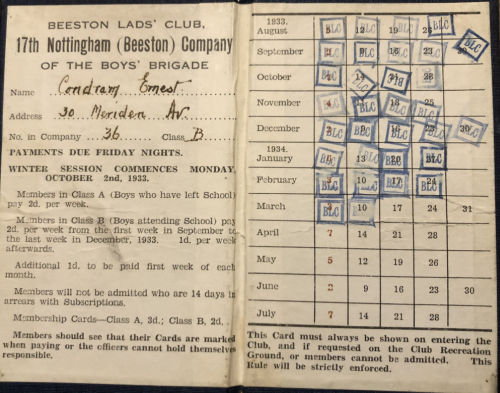 BEESTON LADS' CLUB.
17th Nottingham (Beeston) Company
OF THE BOYS' BRIGADE
Name Condram Ernest
Address 30 Meriden Av.
No. in Company 36. Class B.
PAYMENTS DUE FRIDAY NIGHTS.
WINTER SESSION COMMENCES MONDAY,
OCTOBER 2nd, 1933.
Members in Class A (Boys who have left School)
pay 2d. per week.
Members in Class B (Boys attending School) pay
2d. per week from the first week in September to
the last week in December, 1933. 1d. per week
afterwards.
Additional 1d. to be paid first week of each
month.
Members will not be admitted who are 14 days in
arrears with Subscriptions.
Membership Cards—Class A, 3d.; Class B, 2d.
Members should see that their Cards are marked
when paying or the officers cannot hold themselves
responsible.
1933.
August 12 19 26 BLC
September 9 16 23 BLC
October 14 BLC 28
November BLC 18 25
December BLC BLC
1934.
January 13 BLC BLC
February BLC 10 17 24
BLC BLC
March 10 17 24 31
BLC
April 7 14 21 28
May 5 12 19 26
June 2 9 16 23 30
July 7 14 21 28
This Card must always be shown on entering the
Club, and if requested on the Club Recreation
Ground, or members cannot be admitted. This
Rule will be strictly enforced.